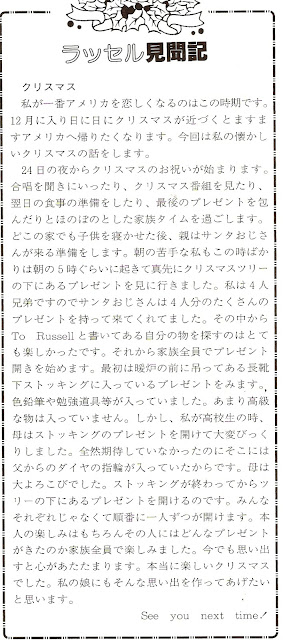 ラッセル見聞記
クリスマス
私が一番アメリカを恋しくなるのはこの時期です。
12月に入り日に日にクリスマスが近づくとますま
すアメリカへ帰りたくなります。今回は私の懐かし
いクリスマスの話をします。
24日の夜からクリスマスのお祝いが始まります。
合唱を聞きにいったり、クリスマス番組を見たり、
翌日の食事の準備をしたり、最後のプレゼントを包
んだりとほのぼのとした家族タイムを過ごします。
どこの家でも子供を寝かせた後、親はサンタおじさ
んが来る準備をします。朝の苦手な私もこの時ばか
りは朝の5時ぐらいに起きて真先にクリスマスツリー
の下にあるプレゼントを見に行きました。私は4人
兄弟ですのでサンタおじさんは4人分のたくさんの
プレゼントを持って来てくれてました。その中から
To Russellと書いてある自分の物を探すのはとて
も楽しかったです。それから家族全員でプレゼント
開きを始めます。最初は暖炉の前に吊ってある長靴
下ストッキングに入っているプレゼントをみます。
色鉛筆や勉強道具等が入っていました。あまり高級
な物は入っていません。しかし、私が高校生の時、
母はストッキングのプレゼントを開けて大変びっく
りしました。全然期待していなかったのにそこには
父からのダイヤの指輪が入っていたからです。母は
大よろこびでした。ストッキングが終わってからツ
リーの下にあるプレゼントを開けるのです。みんな
それぞれじゃなくて順番に一人ずつが開けます。本
人の楽しみはもちろんその人にはどんなプレゼント
がきたのか家族全員で楽しみました。今でも思い出
すと心があたたまります。本当に楽しいクリスマス
でした。私の娘にもそんな思い出を作ってあげたい
と思います。
See you next time!